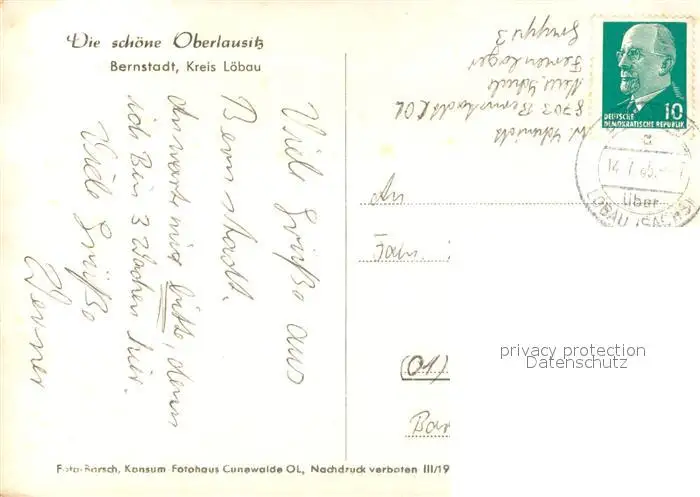 Die schöne Oberlausitz
Bernstadt, Kreis Löbau
Viele Grüße aus
Bernstadt.
Antworte mir bitte, denn
ich bin 3 Wochen hier.
Viele Grüße
Werner
W. Schmidt
8703 Bernstadt OL
Neue Schule
Ferienlager
Gruppe 3
DEUTSCHE
DEMOKRATISCHE REPUBLIK
10
a
14.7.65.-
über
LÖBAU (SACHS)
An
Fam.
(01)
Bar
privacy protection
Datenschutz
Foto-Borsch, Konsum-Fotohaus Cunewalde OL, Nachdruck verboten III/19